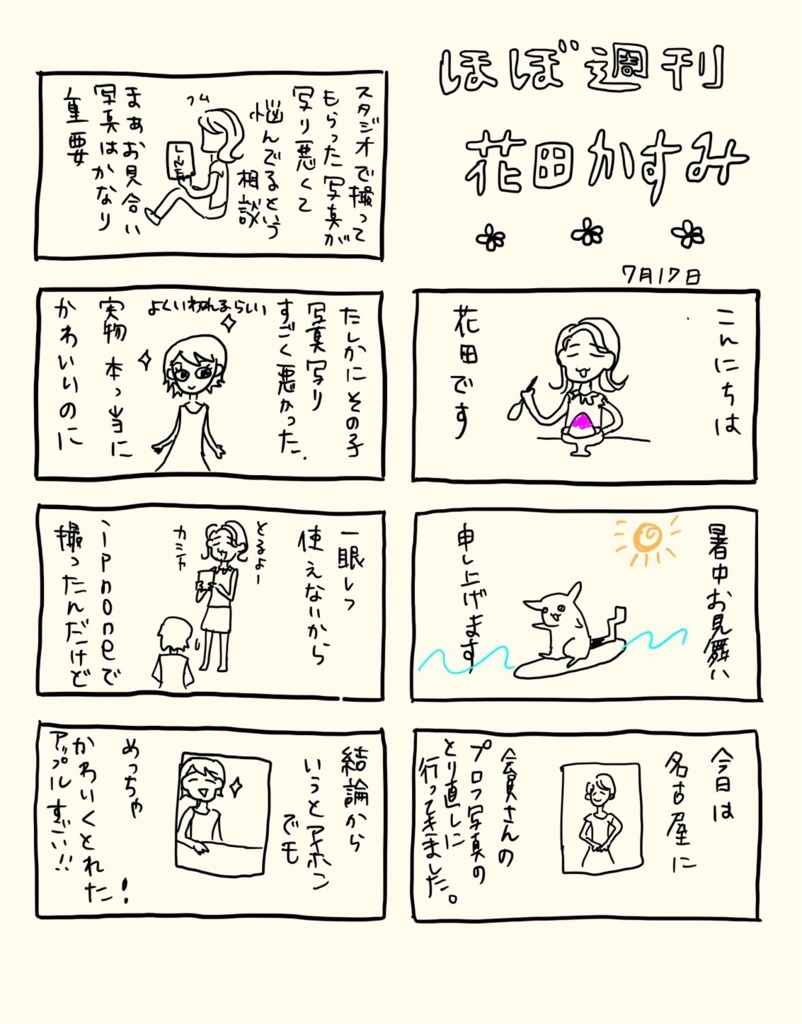 ほぼ週刊
花田かすみ
7月17日
こんにちは
花田です
暑中お見舞い
申し上げます
今日は
名古屋に
会員さんの
プロフ写真の
とり直しに
行ってきました。
スタジオで撮って
もらった写真が
写り悪くて
悩んでるという
相談
フム
まぁお見合い
写真はかなり
重要
たしかにその子
写真写り
すごく悪かった.
よくいわれるらしい
実物 本っ当に
かわいいのに
一眼レフ
使えないから
とるよー
カシャ
iphoneで
撮ったんだけど
結論から
いうとアイホン
でも
めっちゃ
かわいくとれた!
アップルすごい!!